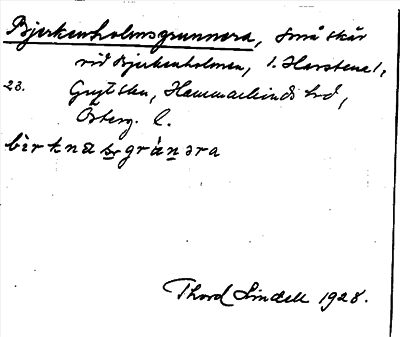 Bjerkenholmsgrunnora, små skär
vid Bjerkenholmen, i. Harstena i,
23. Gryts skn, Hammarkinds hd,
Österg. l.
Thord Lindell 1928.